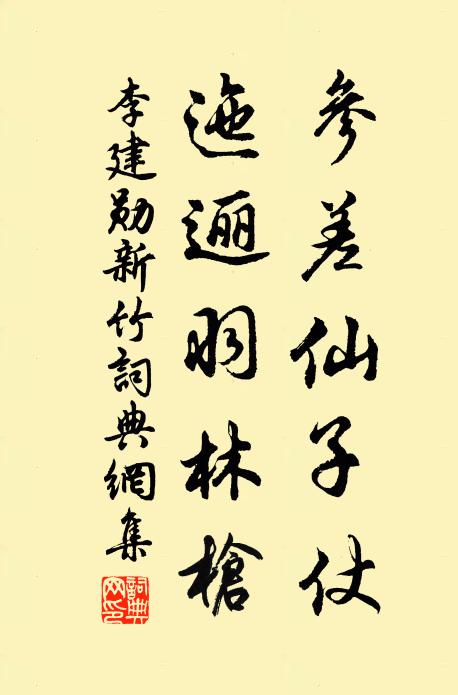 參差仙子仗
迤逦羽林槍
李建勋新竹詞典網集
詞典网印